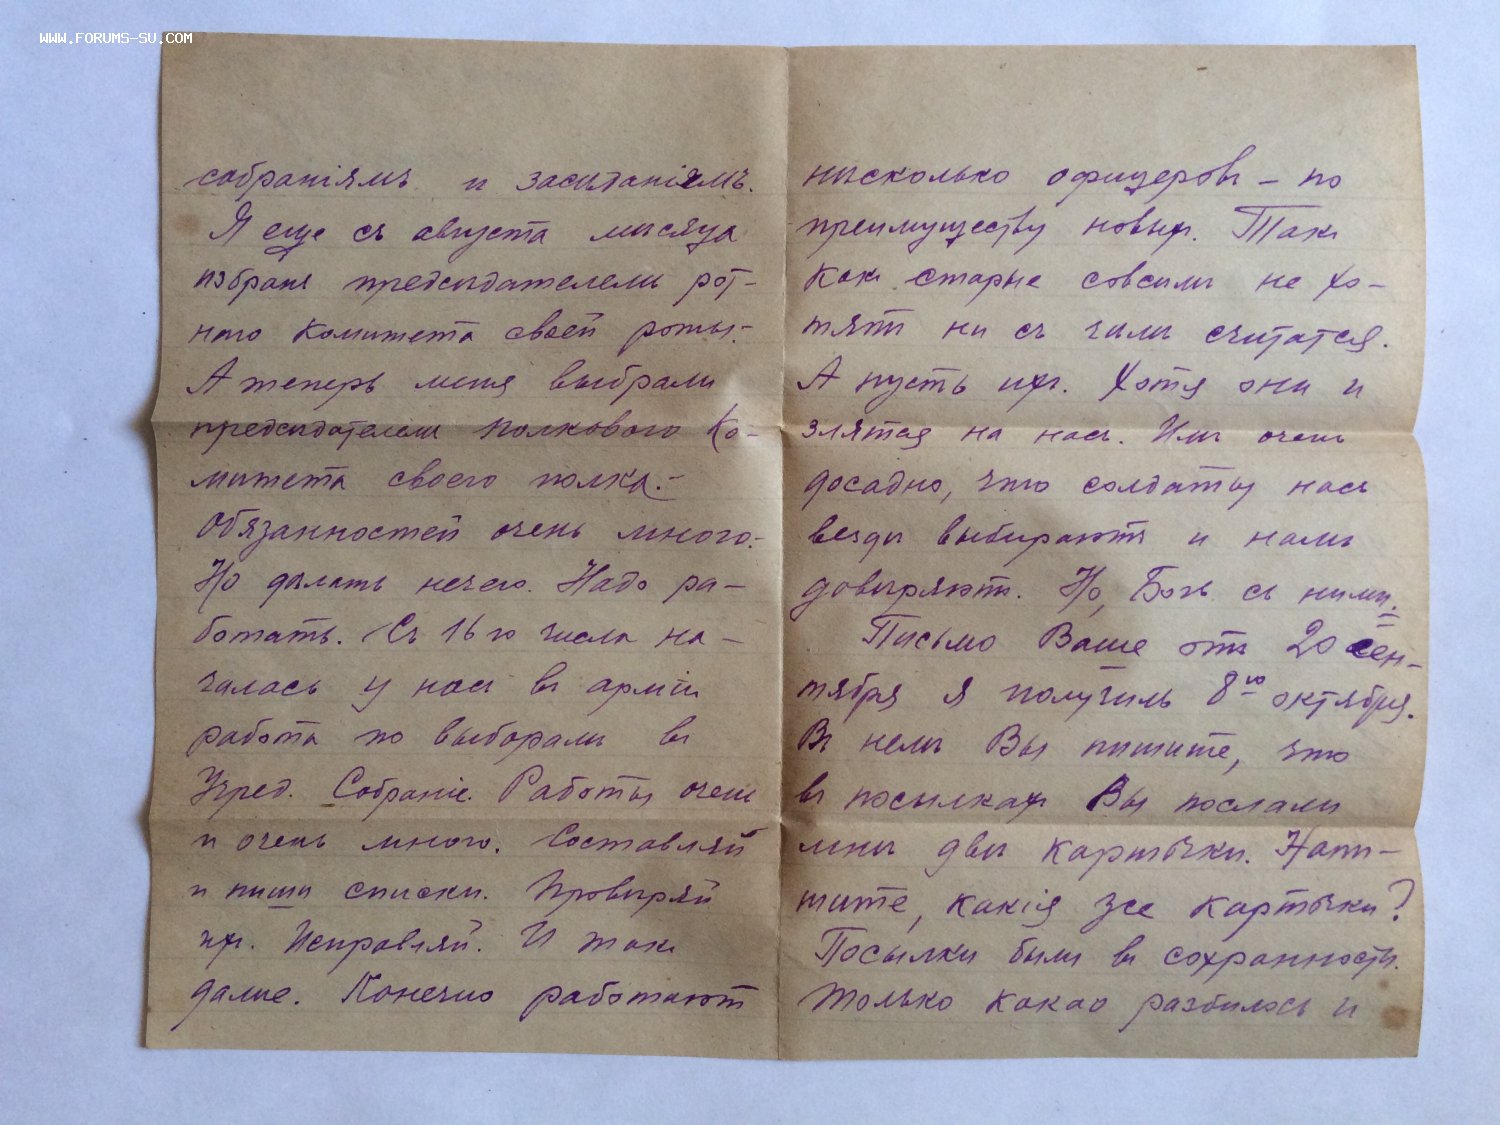 WWW.FORUMS-SU.COM
собраніямъ и засѣданіямъ.
Я еще съ августа мѣсяца
избранъ предсѣдателемъ рот-
наго комитета своей роты.-
А теперь меня выбрали
предсѣдателемъ полкового Ко-
митета своего полка.-
Обязанностей очень много.-
Но дѣлать нечего. Надо ра-
ботать. Съ 16го числа на-
чалась у насъ въ арміи
работа по выборамъ въ
Учред. Собраніе. Работы очень
и очень много. Составляй
и пиши списки. Провѣряй
ихъ. Исправляй. И такъ
далѣе. Конечно работаютъ
нѣсколько офицеровъ - по
преимуществу новых. Такъ
какъ старые совсѣмъ не хо-
тятъ ни съ чѣмъ считатся.
А пусть ихъ. Хотя они и
злятся на насъ. Имъ очень
досадно, что солдаты насъ
вездѣ выбираютъ и намъ
довѣряютъ. Но, Богъ съ ними.
Письмо Ваше отъ 20 сен-
тября я получилъ 8го октября.
Въ немъ Вы пишите, что
въ посылкахъ Вы послали
мнѣ двѣ карточки. Напи-
шите, какія же карточки?
Посылки были въ сохранности.
Только какао разбилось и